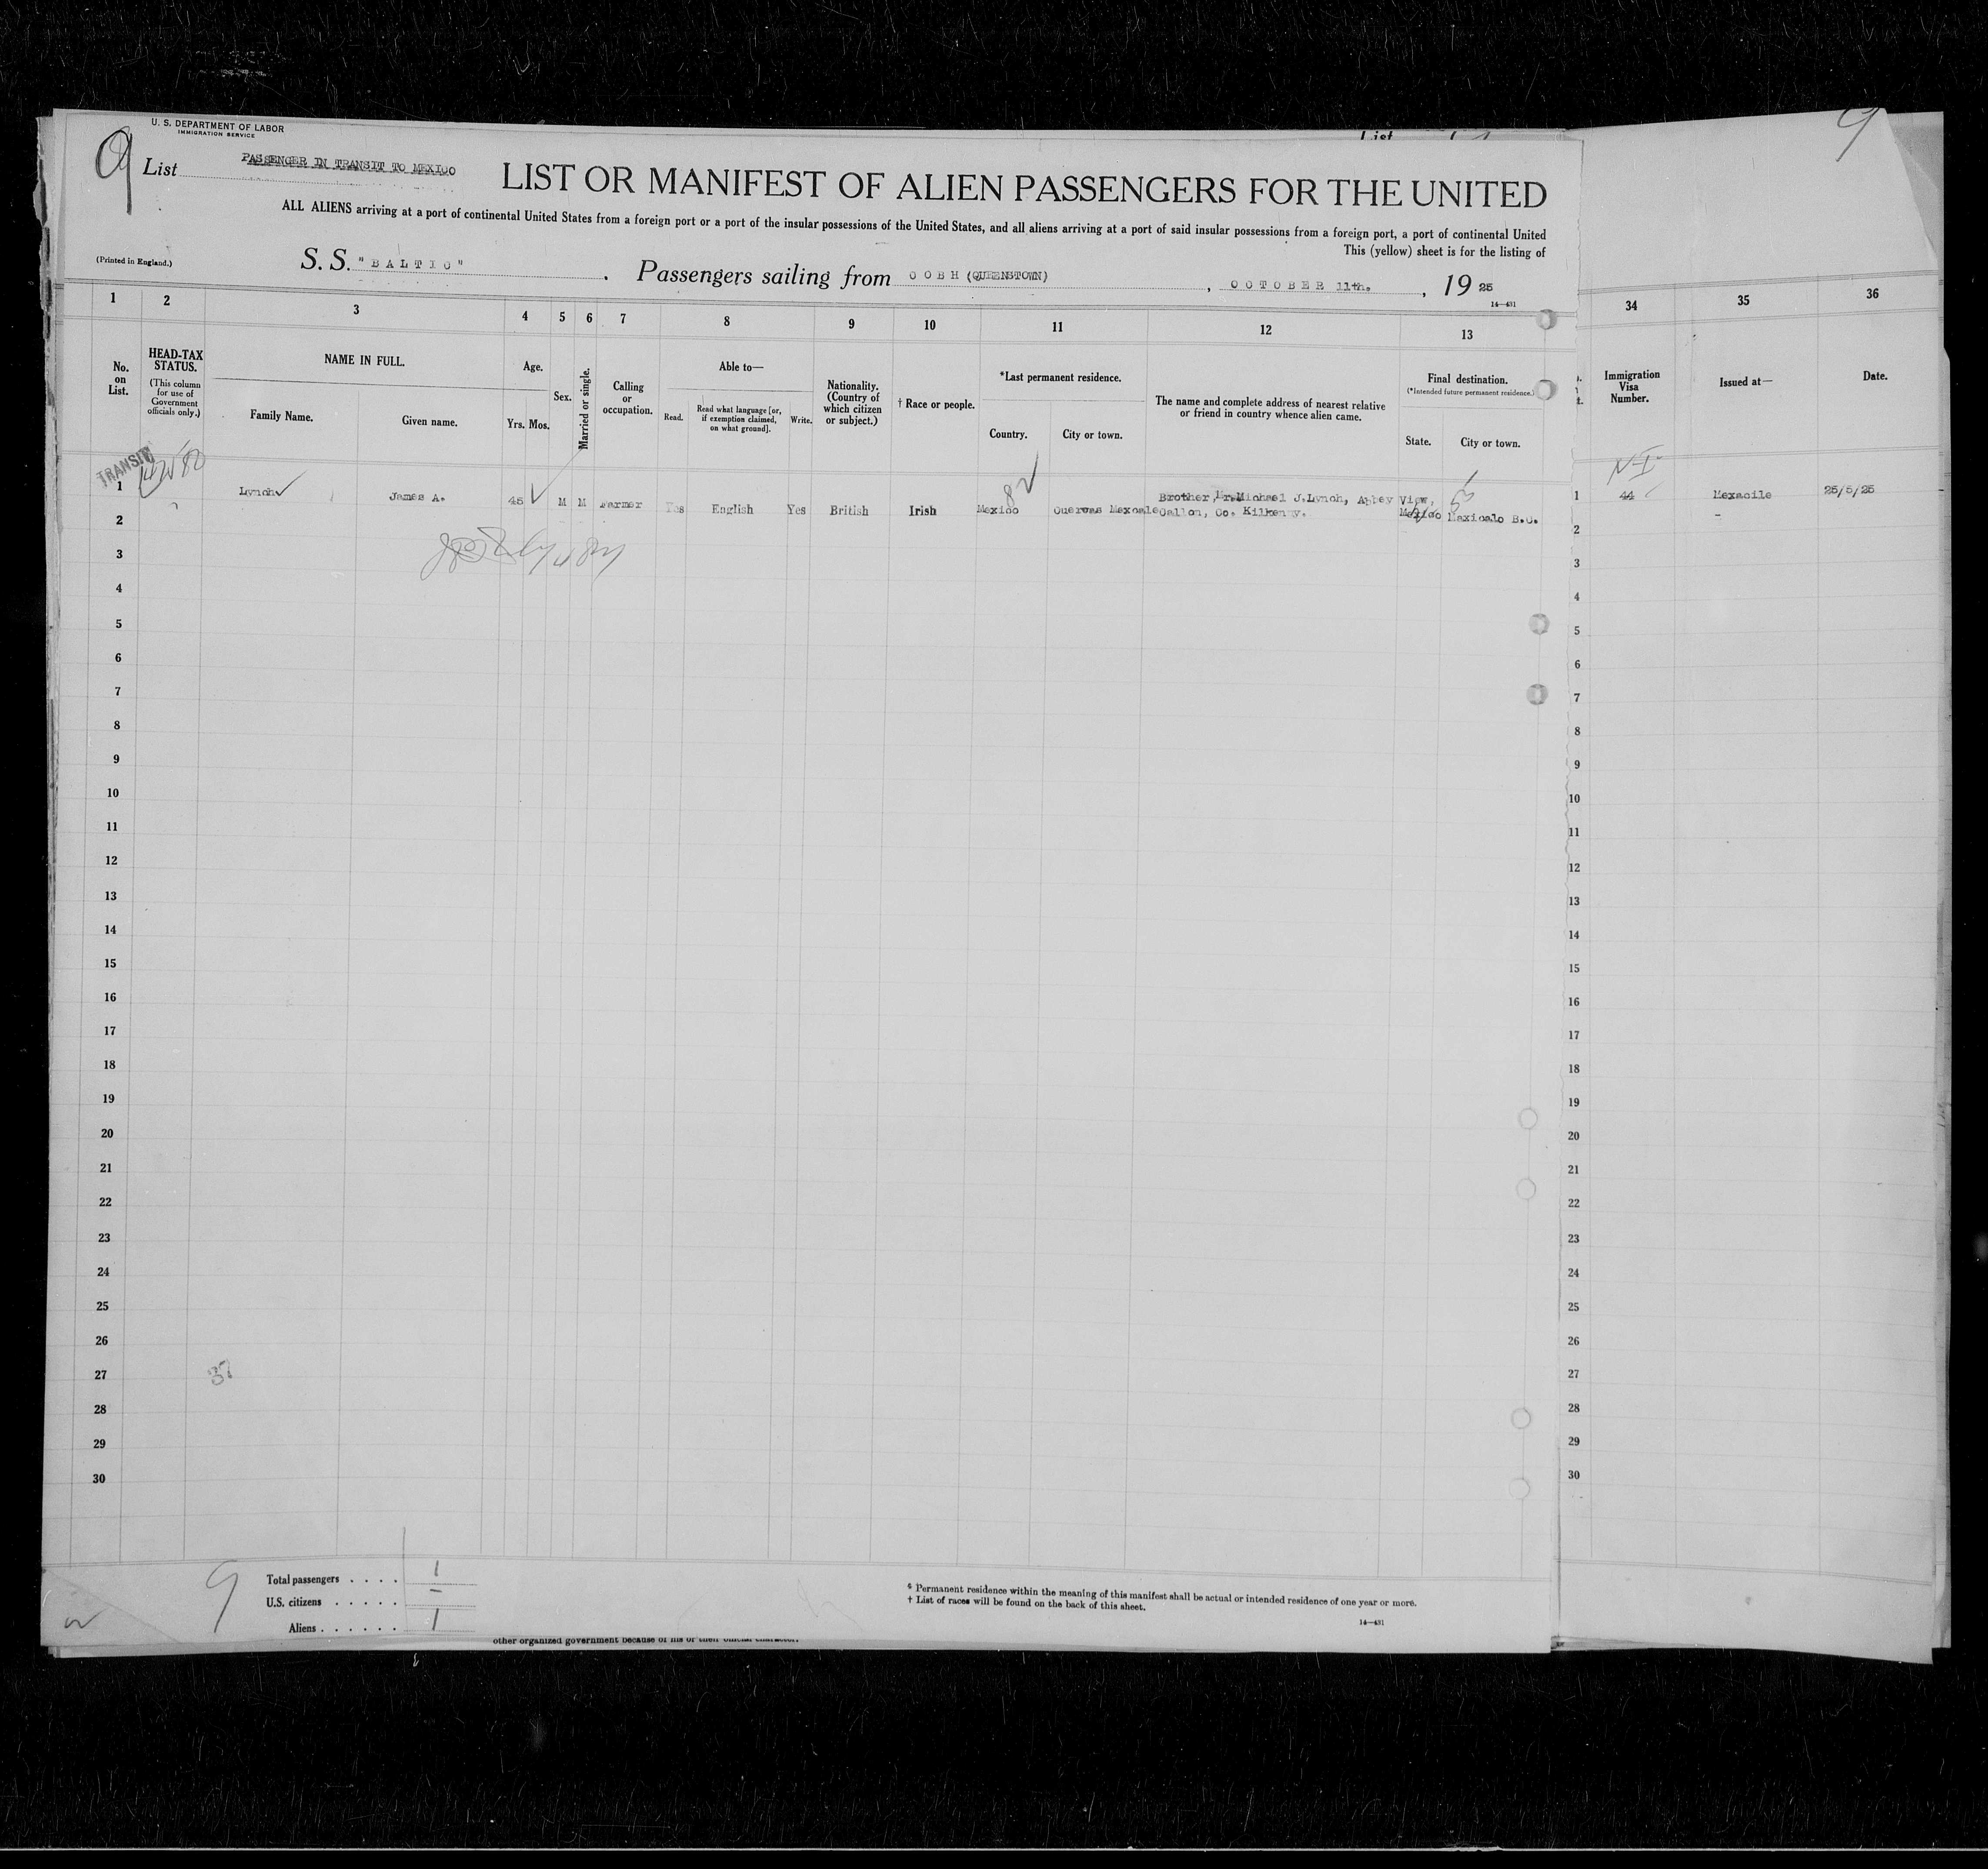 U. S. DEPARTMENT OF LABOR
IMMIGRATION SERVICE
List
9 List PASSENGER IN TRANSIT TO MEXICO
LIST OR MANIFEST OF ALIEN PASSENGERS FOR THE UNITED
ALL ALIENS arriving at a port of continental United States from a foreign port or a port of the insular possessions of the United States, and all aliens arriving at a port of said insular possessions from a foreign port, a port of continental United
This (yellow) sheet is for the listing of
(Printed in England.)
S. S. "BALTIC" . Passengers sailing from COBH (QUEENSTOWN) , OCTOBER 11th. , 19 25
14—431
9
1 2 3 4 5 6 7 8 9 10 11 12 13 34 35 36
No. on List.
HEAD-TAX STATUS.
(This column for use of Government officials only.)
NAME IN FULL.
Family Name. Given name.
Age.
Yrs. Mos.
Sex.
Married or single.
Calling or occupation.
Able to—
Read. Read what language [or, if exemption claimed, on what ground]. Write.
Nationality. (Country of which citizen or subject.)
† Race or people.
*Last permanent residence.
Country. City or town.
The name and complete address of nearest relative or friend in country whence alien came.
Final destination.
(*Intended future permanent residence.)
State. City or town.
Immigration Visa Number.
Issued at—
Date.
TRANSIT
N-I-
1 Lynch James A. 45 M M Farmer Yes English Yes British Irish Mexico Brother, Mr. Michael J. Lynch, Abbey View,
Callon, Co. Kilkenny. Mexico Mexicalo B.C.
1 44 Mexacile 25/5/25
2 2
3 3
4 4
5 5
6 6
7 7
8 8
9 9
10 10
11 11
12 12
13 13
14 14
15 15
16 16
17 17
18 18
19 19
20 20
21 21
22 22
23 23
24 24
25 25
26 26
27 37 27
28 28
29 29
30 30
9
Total passengers . . . . 1
U.S. citizens . . . . . –
Aliens . . . . . . 1
* Permanent residence within the meaning of this manifest shall be actual or intended residence of one year or more.
† List of races will be found on the back of this sheet.
14—431
other organized government because of his or their official character.